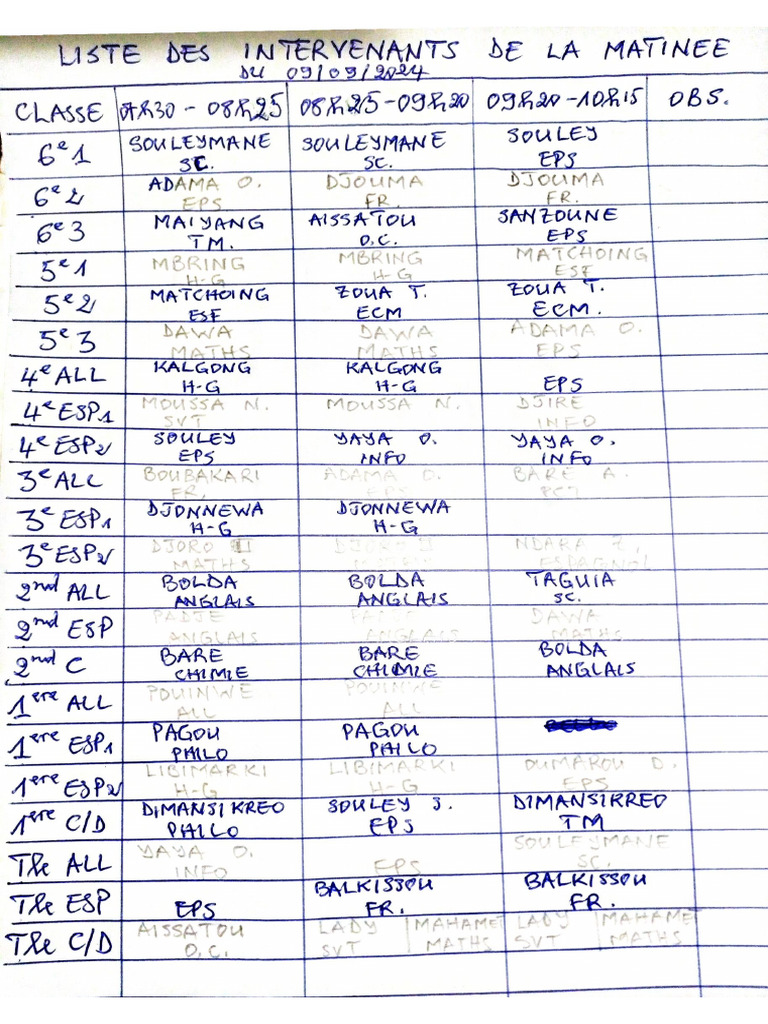 LISTE DES INTERVENANTS DE LA MATINEE
DU 09/09/2024
CLASSE 07h30 - 08h25 08h25-09h20 09h20-10h15 OBS.
6e1 SOULEYMANE SC. SOULEYMANE SC. SOULEY EPS
6e2 ADAMA O. EPS DJOUMA FR. DJOUMA FR.
6e3 MAIYANG TM. AISSATOU O.C. SANZOUNE EPS
5e1 MBRING H-G MBRING H-G MATCHOING ESF
5e2 MATCHOING ESF ZOUA T. ECM ZOUA T. ECM.
5e3 DAWA MATHS DAWA MATHS ADAMA O. EPS
4e ALL KALGONG H-G KALGONG H-G EPS
4e ESP1 MOUSSA N. SVT MOUSSA N. DJIRE INFO
4e ESP2 SOULEY EPS YAYA O. INFO YAYA O. INFO
3e ALL BOUBAKARI FR. ADAMA O. EPS BARE A.
3e ESP1 DJONNEWA H-G DJONNEWA H-G
3e ESP2 DJORO II MATHS DJORO II NDARA Z. ESPAGNOL
2nd ALL BOLDA ANGLAIS BOLDA ANGLAIS TAGUIA SC.
2nd ESP PADJE ANGLAIS ANGLAIS DAWA MATHS
2nd C BARE CHIMIE BARE CHIMIE BOLDA ANGLAIS
1ere ALL POUINWE ALL POUINWE ALL
1ere ESP1 PAGOU PHILO PAGOU PHILO
1ere ESP2 LIBIMARKI H-G LIBIMARKI H-G OUMAROU D. EPS
1ere C/D DIMANSIKREO PHILO SOULEY S. EPS DIMANSIKREO TM
Tle ALL YAYA O. INFO EPS SOULEYMANE SC.
Tle ESP EPS BALKISSOU FR. BALKISSOU FR.
Tle C/D AISSATOU O.C. LADY SVT MAHAMET MATHS LADY SVT MAHAMET MATHS